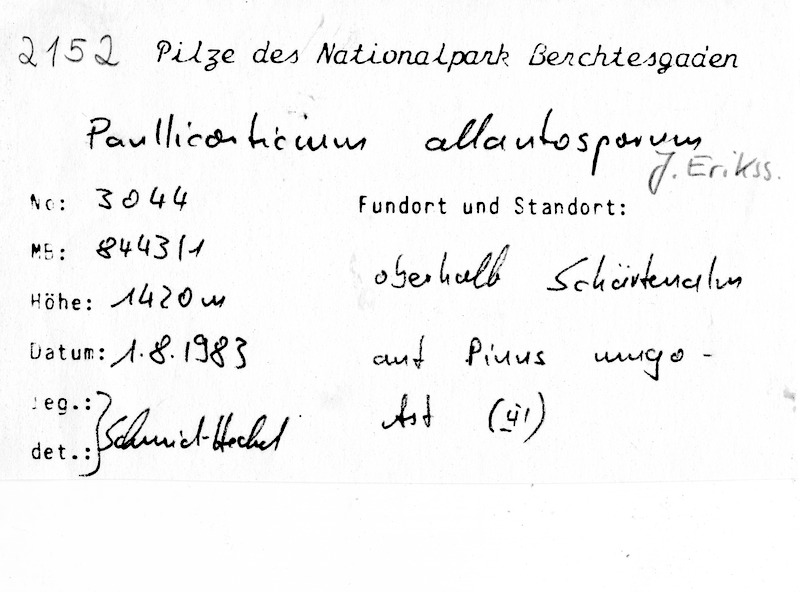 2152 Pilze des Nationalpark Berchtesgaden
Paullicorticium allantosporum
J. Erikss.
No: 3044
MB: 8443/1
Höhe: 1420 m
Datum: 1.8.1983
leg.:
det.: Schmid-Heckel
Fundort und Standort:
oberhalb Schärtenalm
auf Pinus mugo-
Ast (VI)